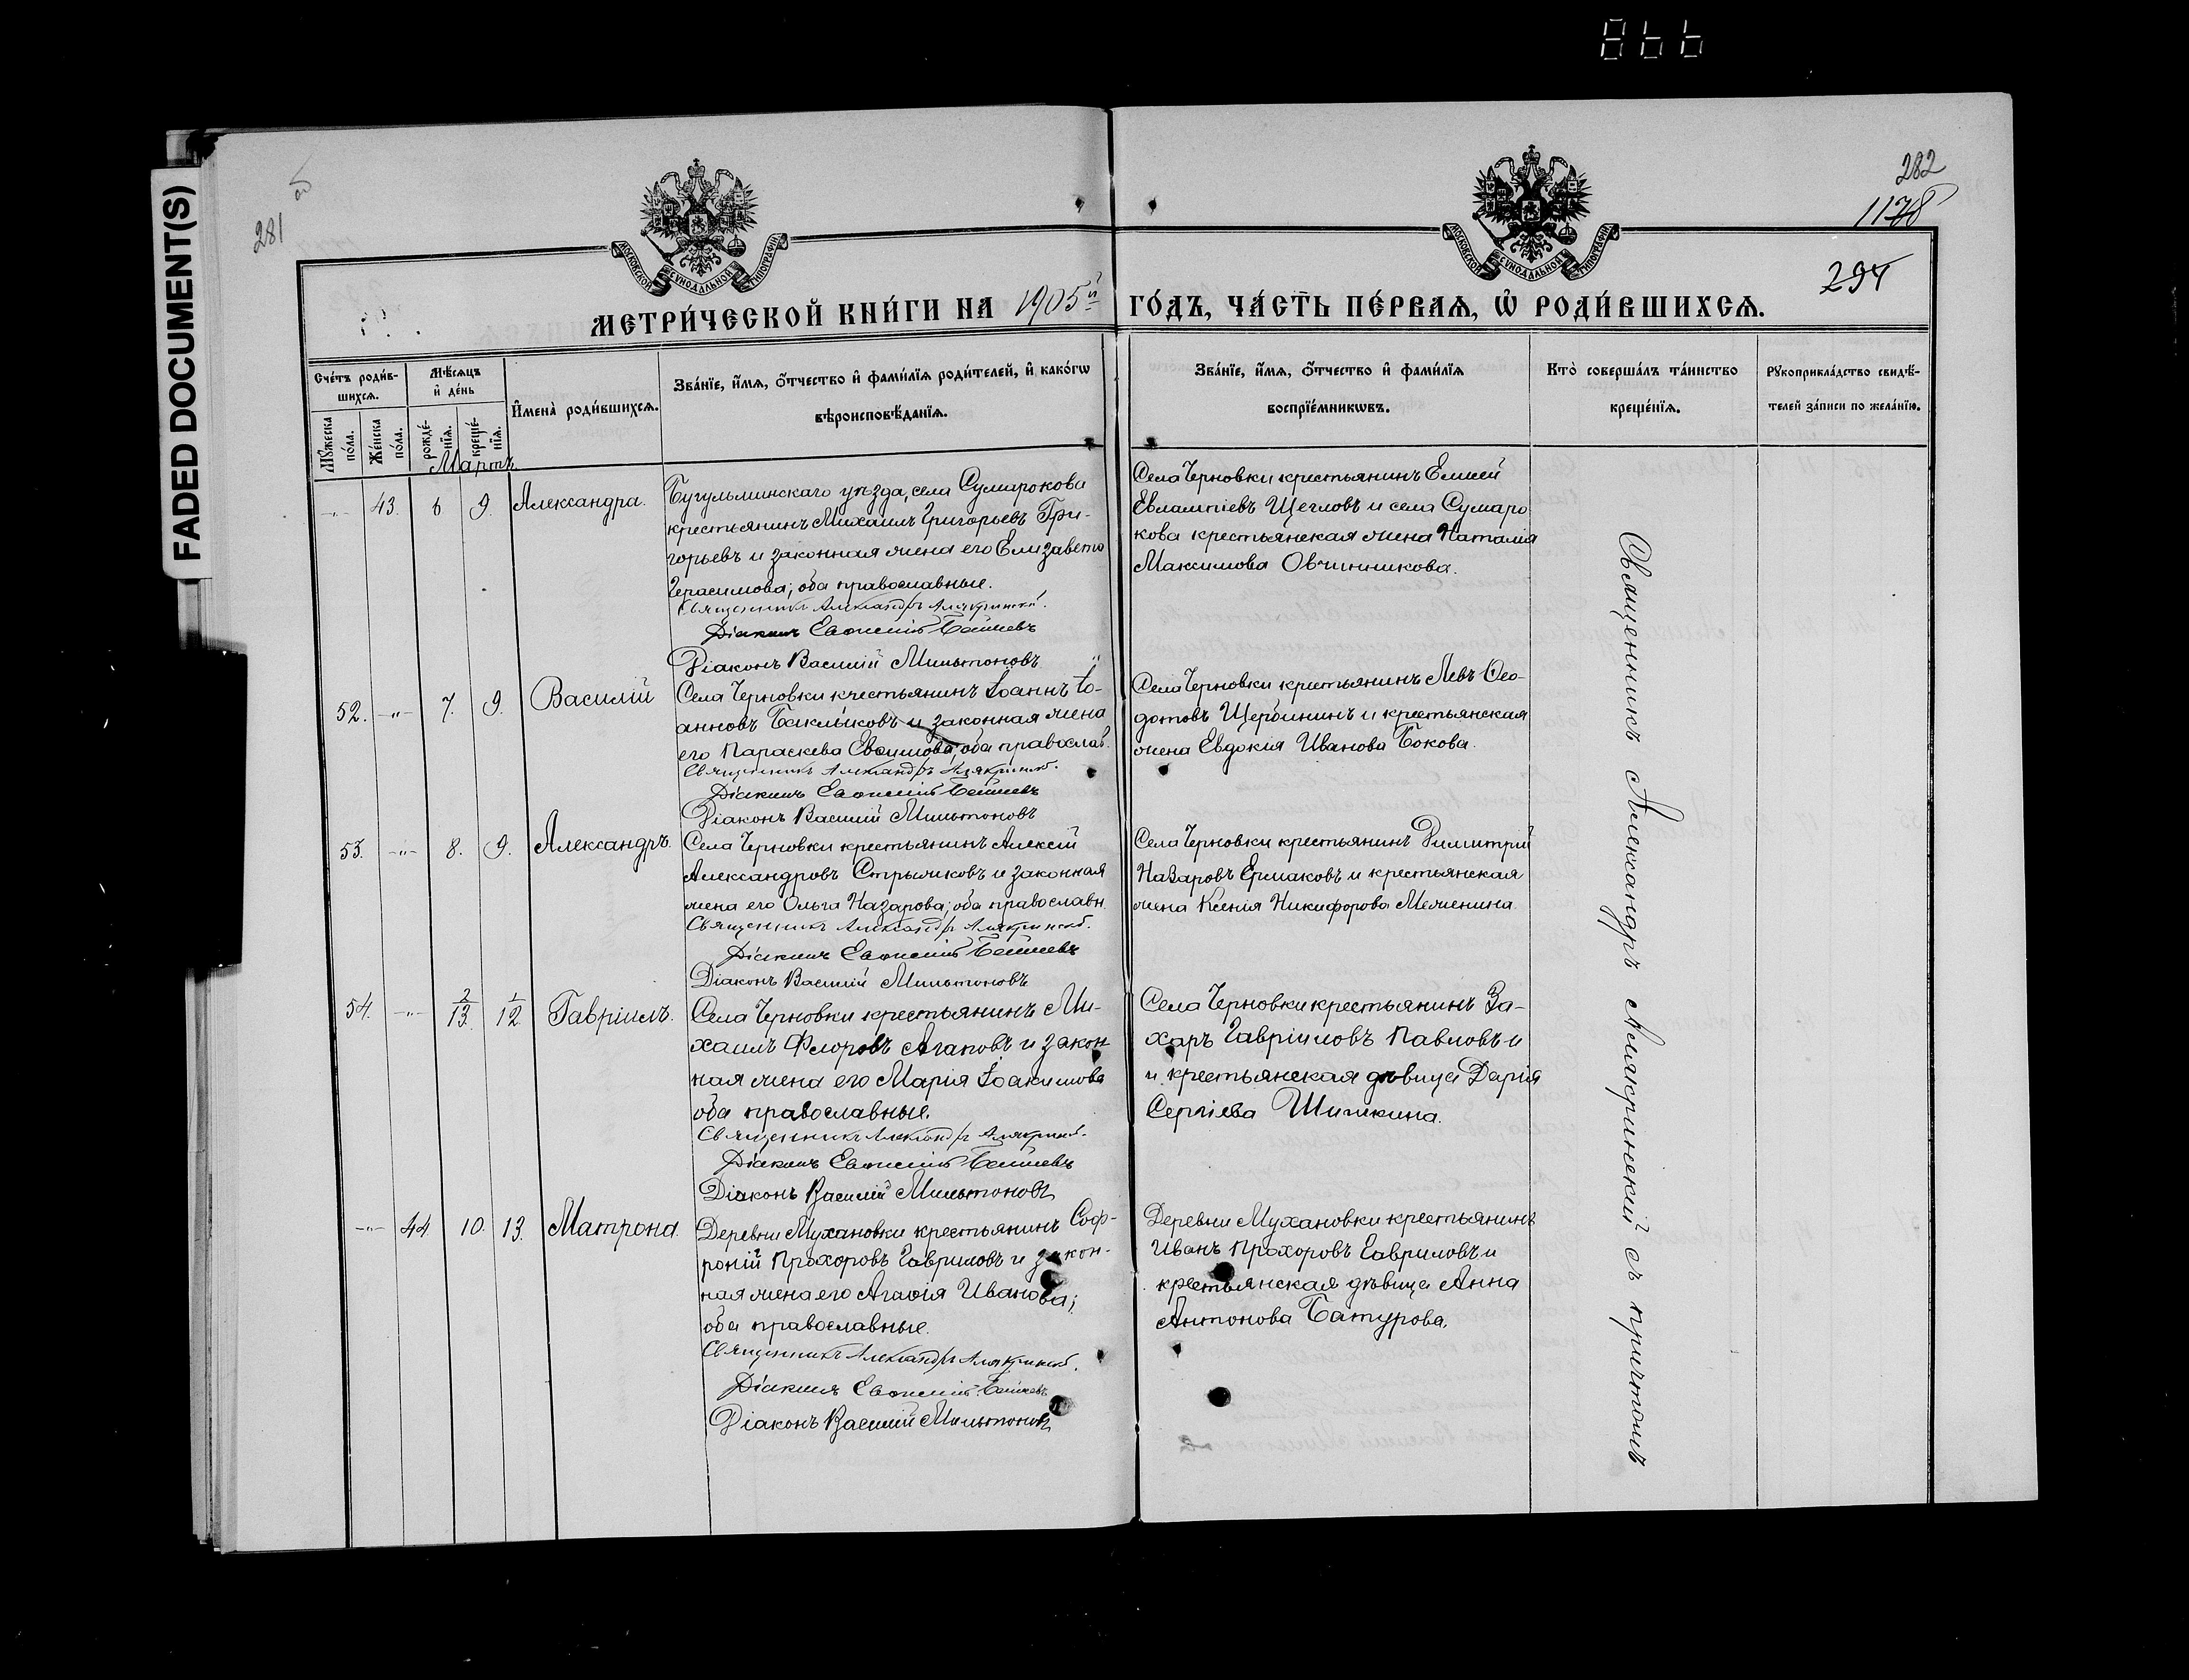 866
FADED DOCUMENT(S)
281
282
1178
294
МОСКОВСКОЙ СУНОДАЛЬНОЙ ТИПОГРАФИИ
МОСКОВСКОЙ СУНОДАЛЬНОЙ ТИПОГРАФИИ
МЕТРИ́ЧЕСКОЙ КНИ́ГИ НА 1905й ГО́ДЪ, ЧА́СТЬ ПЕ́РВАѦ, Ѡ҆ РОДИ́ВШИХСѦ.
Сче́тъ роди́в-
шихсѧ.
Мꙋ́жеска
по́ла.
Же́нска
по́ла.
Мѣ́сѧцъ
и҆ де́нь
рожде́-
нїѧ.
креще́-
нїѧ.
И҆мена̀ роди́вшихсѧ.
Зва́нїе, и҆́мѧ, ѻ҆́тчество и҆ фами́лїѧ роди́телей, и҆ како́гѡ
вѣроисповѣ́данїѧ.
Зва́нїе, и҆́мѧ, ѻ҆́тчество и҆ фами́лїѧ
воспрїе́мникѡвъ.
Кто̀ соверша́лъ та́инство
креще́нїѧ.
Рꙋкоприкла́дство свидѣ́-
телей за́писи по жела́нїю.
Мартъ
-"- 43. 6 9. Александра.
Бугульминскаго уѣзда, села Сумарокова
крестьянинъ Михаилъ Григорьевъ Гри-
горьевъ и законная жена его Елизавета
Герасимова; оба православные.
Священникъ Александръ Алякринскій.
Діаконъ
Діаконъ Василій Мильтоновъ
Села Черновки крестьянинъ
Евлампіевъ Щегловъ и села Сумаро
кова крестьянская жена Наталія
Максимова Овчинникова.
52. -"- 7. 9. Василій
Села Черновки крестьянинъ Іоаннъ Іо-
анновъ Баклыковъ и законная жена
его Параскева оба православ.
Священникъ Александръ Алякринскій.
Діаконъ
Діаконъ Василій Мильтоновъ
Села Черновки крестьянинъ Левъ Ѳео-
дотовъ Щербининъ и крестьянская
жена Евдокія Иванова Бокова.
53. -"- 8. 9. Александръ.
Села Черновки крестьянинъ Алексій
Александровъ Стрыжиковъ и законная
жена его Ольга Назарова; оба православн.
Священникъ Александръ Алякринскій.
Діаконъ
Діаконъ Василій Мильтоновъ
Села Черновки крестьянинъ Димитрій
Назаровъ Ермаковъ и крестьянская
жена Ксенія Никифорова
54. -"- 2/13. 1/12. Гавріилъ.
Села Черновки крестьянинъ Ми-
хаилъ Флоровъ Агаповъ и закон
ная жена его Марія Іоакимова
оба православные.
Священникъ Александръ Алякринскій.
Діаконъ
Діаконъ Василій Мильтоновъ
Села Черновки крестьянинъ За-
харъ Гавріиловъ Павловъ и
и крестьянская дѣвица Дарія
Сергіева Шишкина.
-"- 44 10. 13. Матрона.
Деревни Мухановки крестьянинъ Соф-
роній Прохоровъ Гавриловъ и закон-
ная жена его Агаѳія Иванова;
оба православные.
Священникъ Александръ Алякринскій.
Діаконъ
Діаконъ Василій Мильтоновъ
Деревни Мухановки крестьянинъ
Иванъ Прохоровъ Гавриловъ и
крестьянская дѣвица Анна
Антонова Батурова.
Священникъ Александръ Алякринскій съ причтомъ